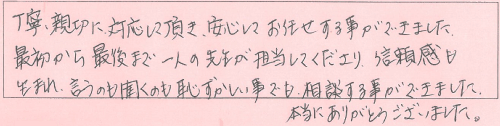 丁寧、親切に対応して頂き、安心してお任せする事ができました。
最初から最後まで一人の先生が担当してくださり、信頼感も
生まれ、言うのも聞くのも恥ずかしい事でも、相談する事ができました。
本当にありがとうございました。